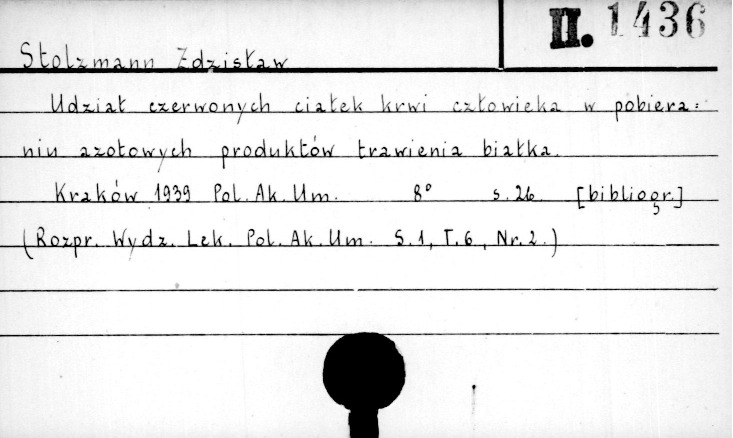 II. 1436
Stolzmann Zdzisław
Udział czerwonych ciałek krwi człowieka w pobiera=
niu azotowych produktów trawienia białka.
Kraków 1939 Pol. Ak. Um. 8° s. 26 [bibliogr.]
(Rozpr. Wydz. Lek. Pol. Ak. Um. S. 1, T. 6, Nr. 2.)